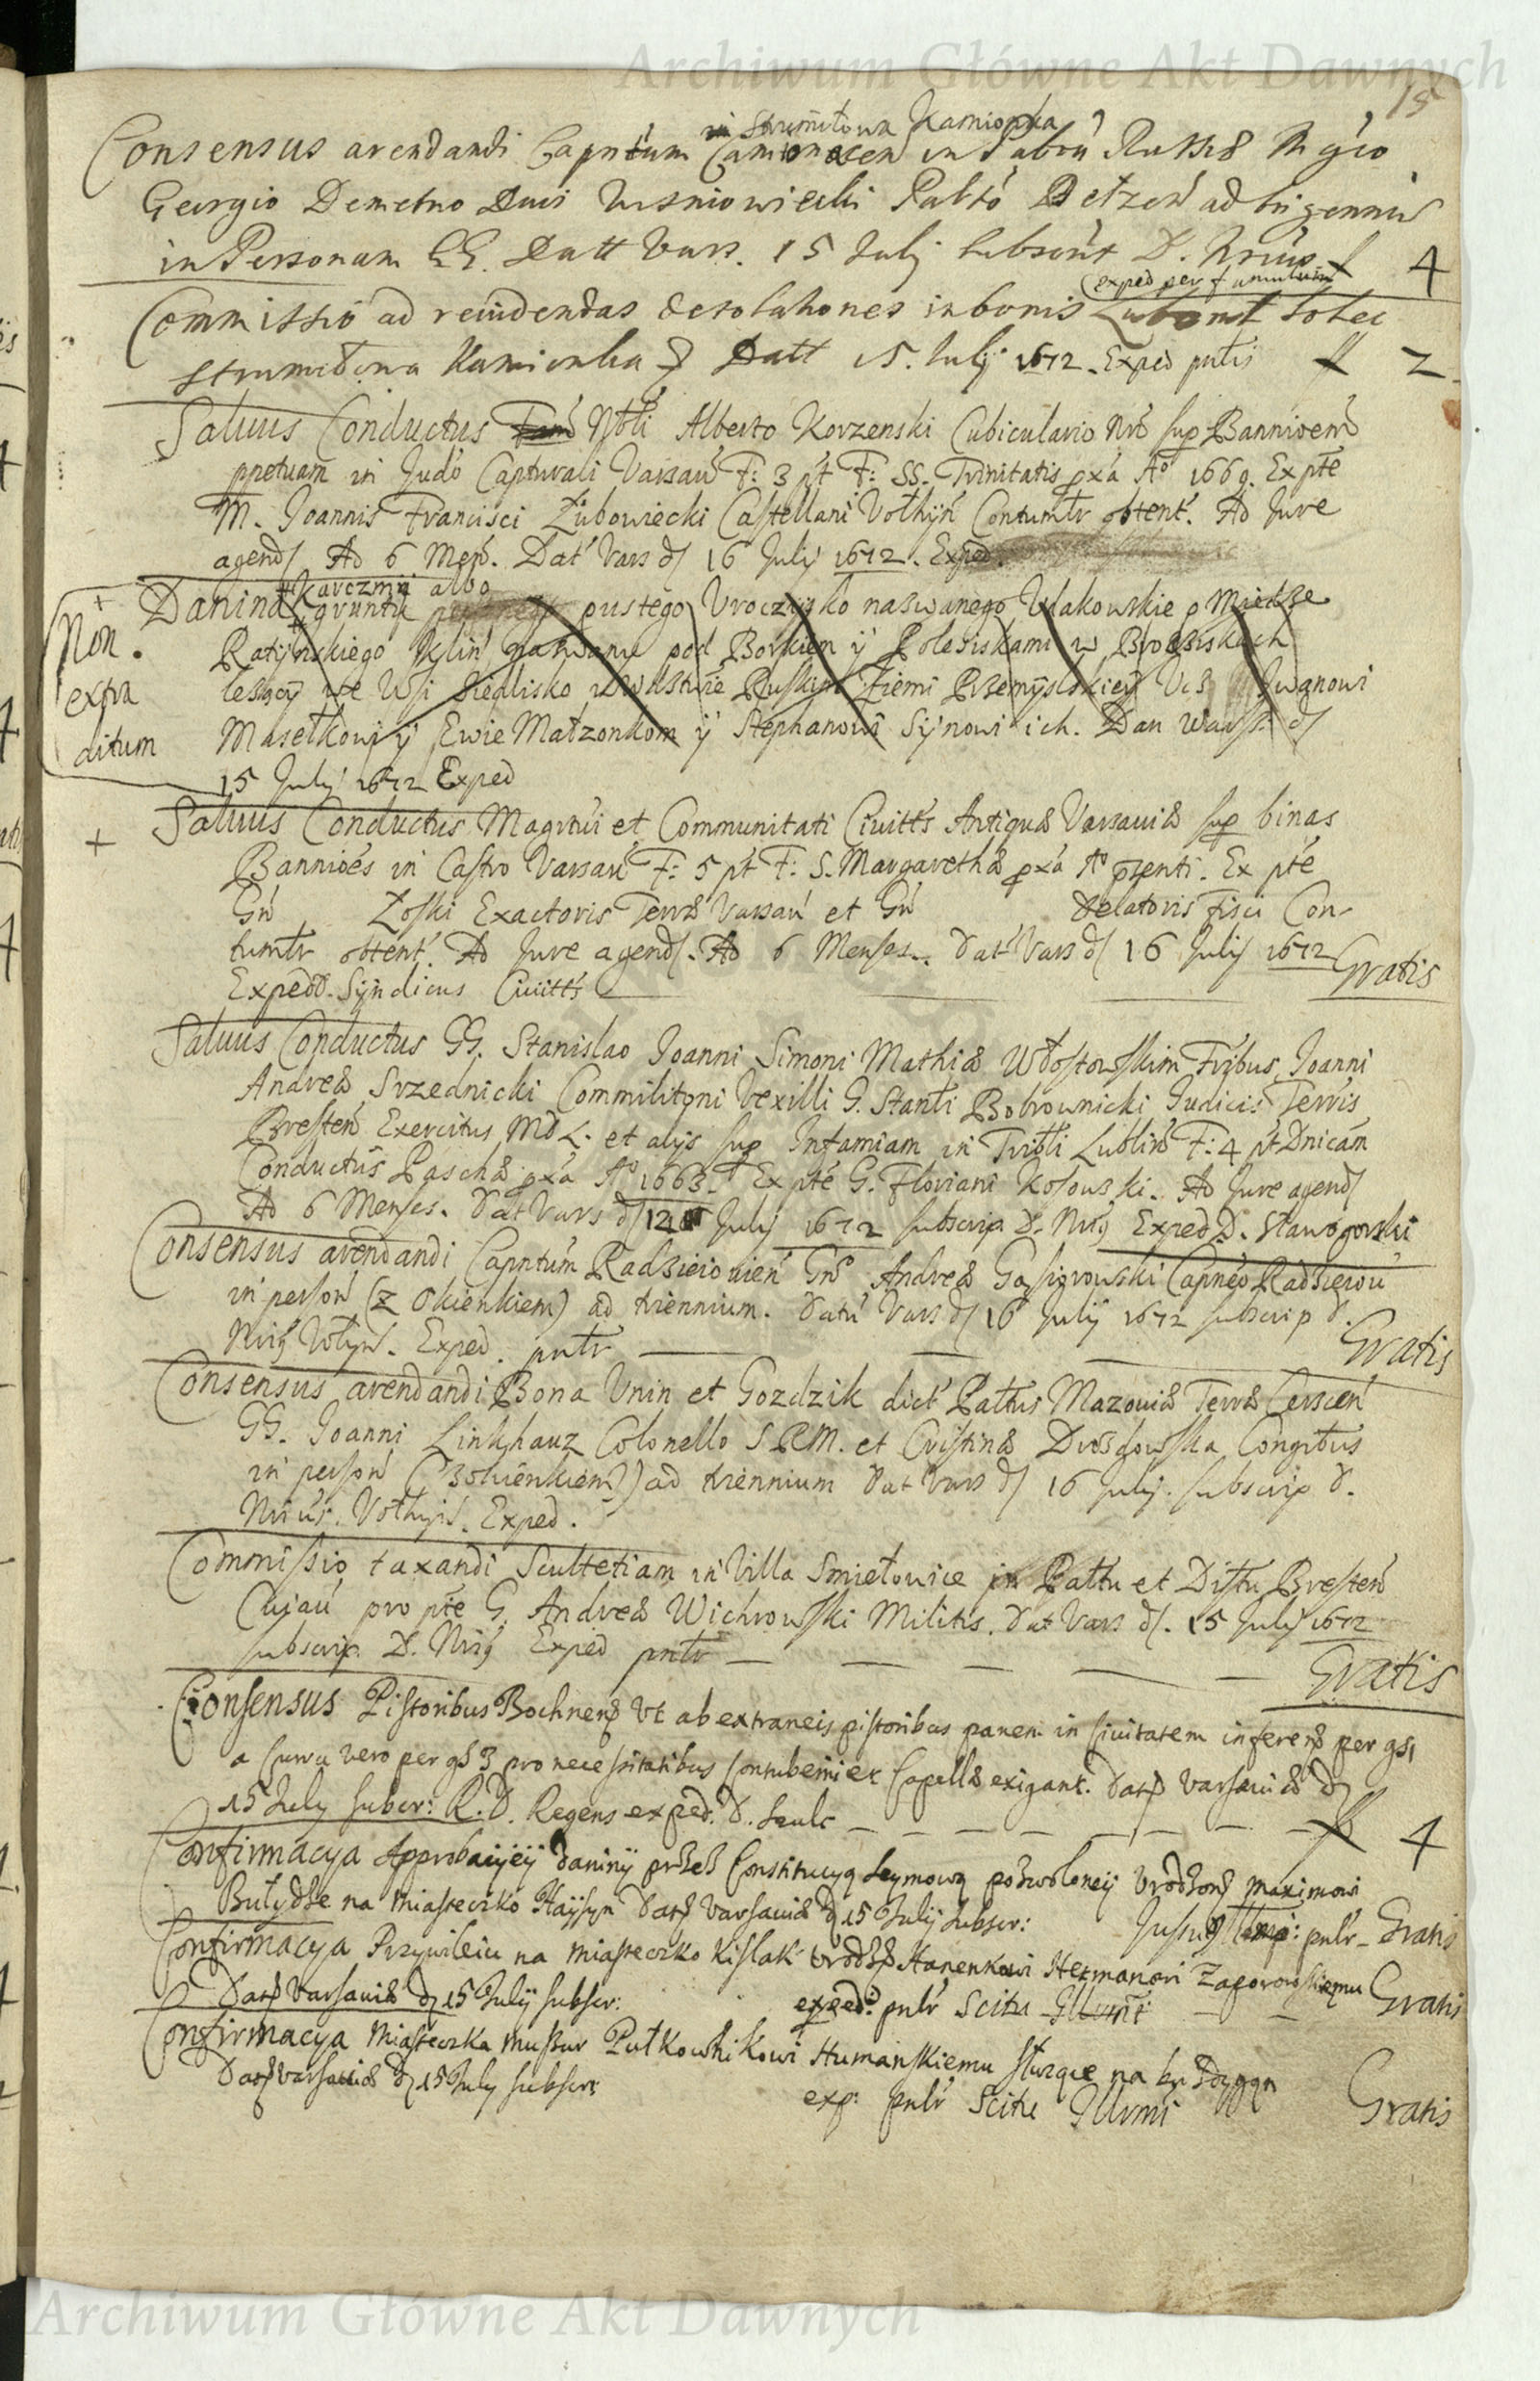 Archiwum Główne Akt Dawnych
15
in Strumiłowa Kamionka
Consensus arendandi Capntum Camionacen in Pabtu Russiæ Mgco
Georgio Demetrio Duci Wisniowiecki Paltó Bełzeń ad trigenniu
in Personam GG. Datt Vars. 15 Julij subscript D. Nrius f 4
exped per famulum
Commissio ad reuidendas desolationes in bonis Lubomł Solec
Strumiłowa Kamionka Datt 15. Julij 1672. Exped pntis f 2
Saluus Conductus Nobli Alberto Korzenski Cubiculario Nro sup Bannioem
ppetuam in Judo Capturali Varsau F: 3 pt F: SS. Trinitatis pxa Ao 1669. Ex pte
M. Joannis Francisci Zubowiecki Castellani Vołhyń Contumtr obtent. Ad Jure
agend Ad 6 Men. Dat Vars d 16 Julij 1672. Exped
+ Karczmy albo
Danina gruntu pustego Vroczysko naswanego Vlakowskie p Miedze
Non. extra ditum
Ratyńskiego Klin nazwany pod Borkiem ÿ Polesiskami w Brodziskach
lesący we Wsi Siedlisko w Wdstwie Ruskim Ziemi Przemyslskiey Vcz Jwanowi
Masełkowi ÿ Ewie Małzonkom ÿ Stephanowi Synowi ich. Dan Warss. d
15 Julij 1672 Exped
+ Saluus Conductus Magrtui et Communitati Ciuittis Antiquæ Varsauiæ sup binas
Bannioes in Castro Varsau F: 5 pt F: S. Margarethæ pxa Ao pzenti. Ex pte
Gn Zoski Exactoris Terræ Varsau et Gn Delatoris Fisci Con-
tumtr obtent. Ad Jure agend. Ad 6 Menses. Dat Vars d 16 Julij 1672 Gratis
Exped D. Syndicus Ciuittis
Saluus Conductus GG. Stanislao Joanni Simoni Mathiæ Włostowskim Fribus Joanni
Andreæ Srzednicki Commilitoni Vexilli G. Stanli Bobrownicki Judicis Terris
Bresten Exercitus MDL. et alijs sup Infamiam in Tribli Lublin F: 4 pt Dnicam
Conductus Paschæ pxa Ao 1663. Ex pte G. Floriani Kosowski. Ad Jure agend
Ad 6 Menses. Dat Vars d 12 Julij 1672 subscrip D. Nrig Exped D. Stawogorski
Consensus arendandi Capntum Radzieiouien Gno Andreæ Gąsiorowski Capneo Radzieiou
in person (z Okienkiem) ad triennium. Datu Vars d 16 Julij 1672 subscrip D.
Nrig Vołyn. Exped. pntr Gratis
Consensus arendandi Bona Vnin et Gozdzik dict Pattus Mazouiæ Terræ Cerscen
GG. Joanni Linkhauz Colonello S.R.M. et Cristinæ Drozdowska Congibus
in person (z okienkiem) ad triennium Dat Vars d 16 Julij. subscrip D.
Nrius. Vołhyis. Exped.
Commissio taxandi Scultetiam in Villa Smiełowice in Pattu et Distu Bresten
Cujau pro pte G. Andreæ Wichrowski Militis. Dat Vars d. 15 Julij 1672
subscrip. D. Nrig Exped pntr Gratis
Consensus Pistoribus Bochnens Vt ab extraneis pistoribus panem in ciuitatem inferens per gs 1
a curru vero per gs 3 pro necessitatibus contubernii et Capellæ exigant. Dat Varsauiæ d
15 July subscr: R. D. Regens exped. D. Szulc f 4
Confirmacya Approbacyey daniny przes Constitucyą Seymową pozwoloney Vrodzon Maximowi
Bułydze na Miasteczko Haysyn Dat Varsauiæ d 15 Julij subscr: Jussu Illmi: pntr Gratis
Confirmacya Przywileiu na miasteczko Kislak Vrodz Hanenkowi Hetmanowi Zaporowskiemu
Dat Varsauiæ d 15 Julij subscr: exped: pntr Scitu Illmi Gratis
Confirmacya Miasteczka Mussur Pułkownikowi Humanskiemu
Dat Varsauiæ d 15 July subscr: exp: pntr Scitu Illrmi Gratis
Archiwum Główne Akt Dawnych